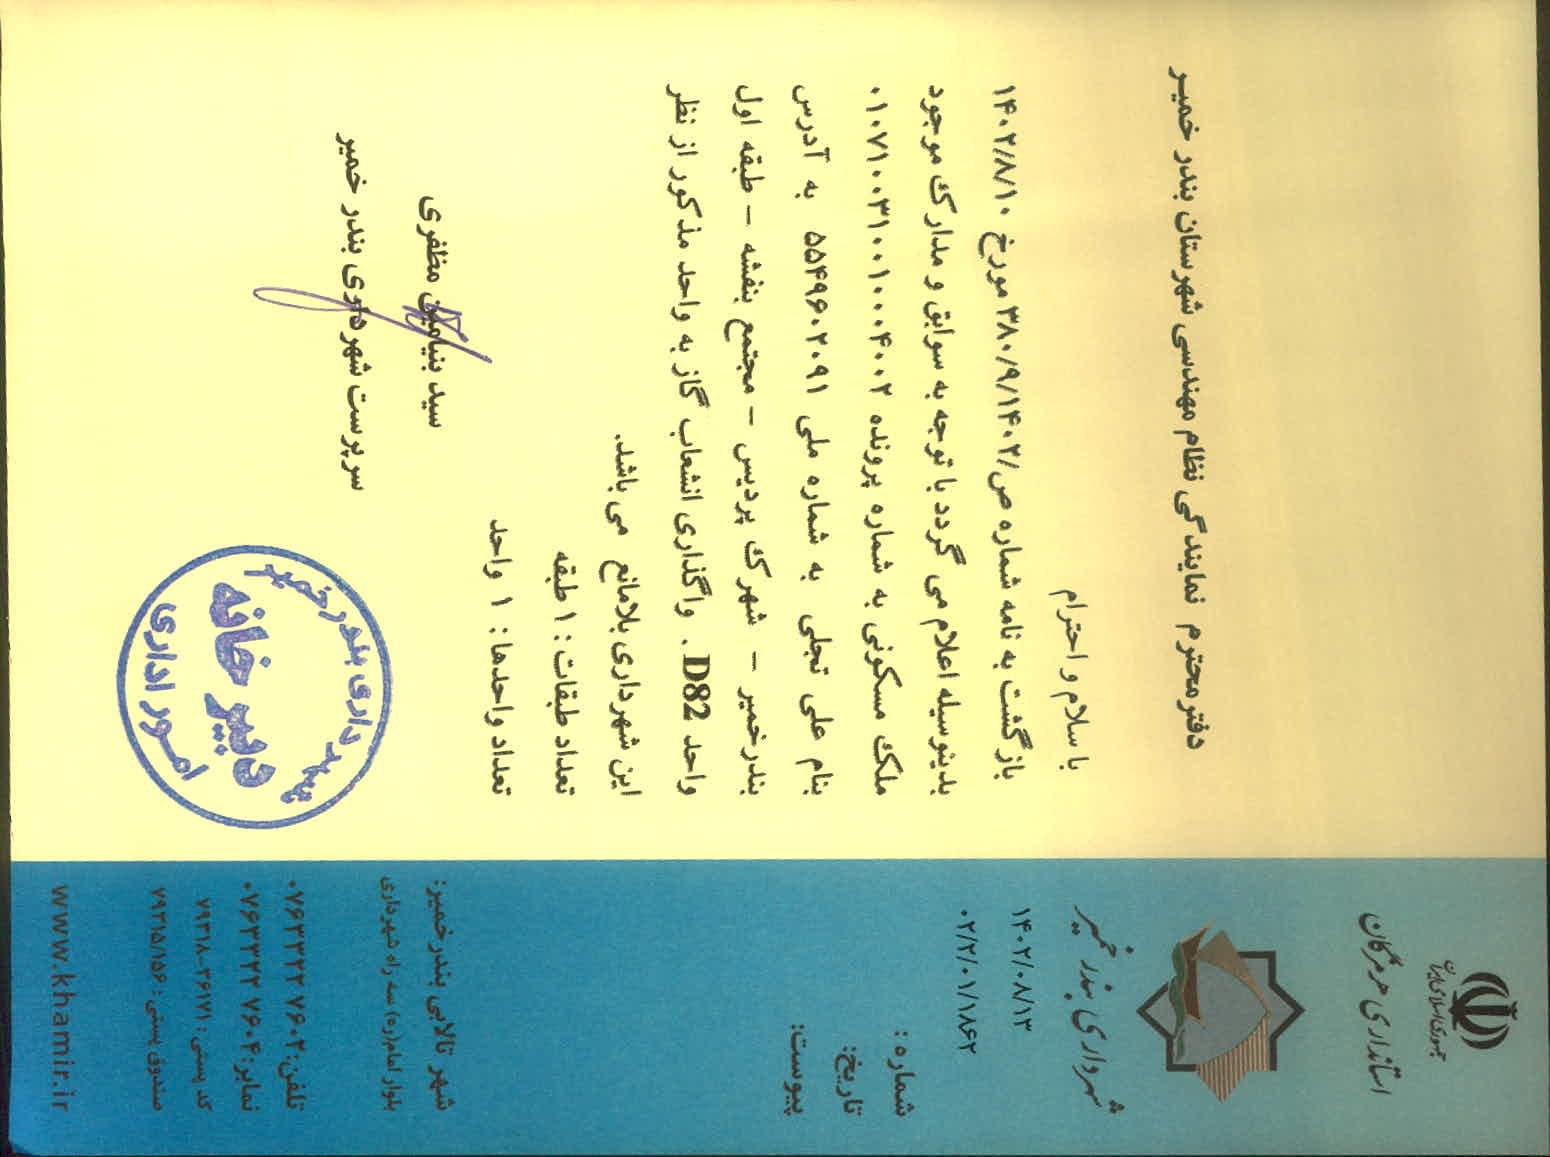 جمهوری اسلامی ایران
استانداری هرمزگان
شهرداری بندر خمیر
۱۴۰۲/۰۸/۱۳
۰۲/۲/۰۱/۱۸۶۲
شماره:
تاریخ:
پیوست:
دفتر محترم نمایندگی نظام مهندسی شهرستان بندر خمیـر
با سلام و احترام
بازگشت به نامه شماره ص/۳۸۰/۹/۱۴۰۲ مورخ ۱۴۰۲/۸/۱۰
بدینوسیله اعلام می گردد با توجه به سوابق و مدارک موجود
ملک مسکونی به شماره پرونده ۰۱۰۷۱۰۰۳۱۰۰۱۰۰۰۴۰۰۲
بنام علی تجلی به شماره ملی ۵۵۴۹۶۰۲۰۹۱ به آدرس
بندرخمیر – شهرک پردیس – مجتمع بنفشه – طبقه اول
واحد D82 . واگذاری انشعاب گاز به واحد مذکور از نظر
این شهرداری بلامانع می باشد.
تعداد طبقات : ۱ طبقه
تعداد واحدها : ۱ واحد
سید بنیامین مظفری
سرپرست شهرداری بندر خمیر
شهرداری بندرخمیر
دبیرخانه
امور اداری
شهر تالابی بندرخمیر:
بلوار امام(ره) سه راه شهرداری
تلفن: ۰۷۶۳۳۲۲ ۷۶۰۲
نمابر: ۰۷۶۳۳۲۲ ۷۶۰۴
کد پستی: ۷۹۳۱۸-۳۶۱۷۱
صندوق پستی: ۷۹۳۱۵/۱۵۶
www.khamir.ir